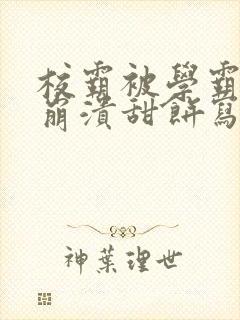 校霸被學霸
崩潰甜餅寫
神葉理世